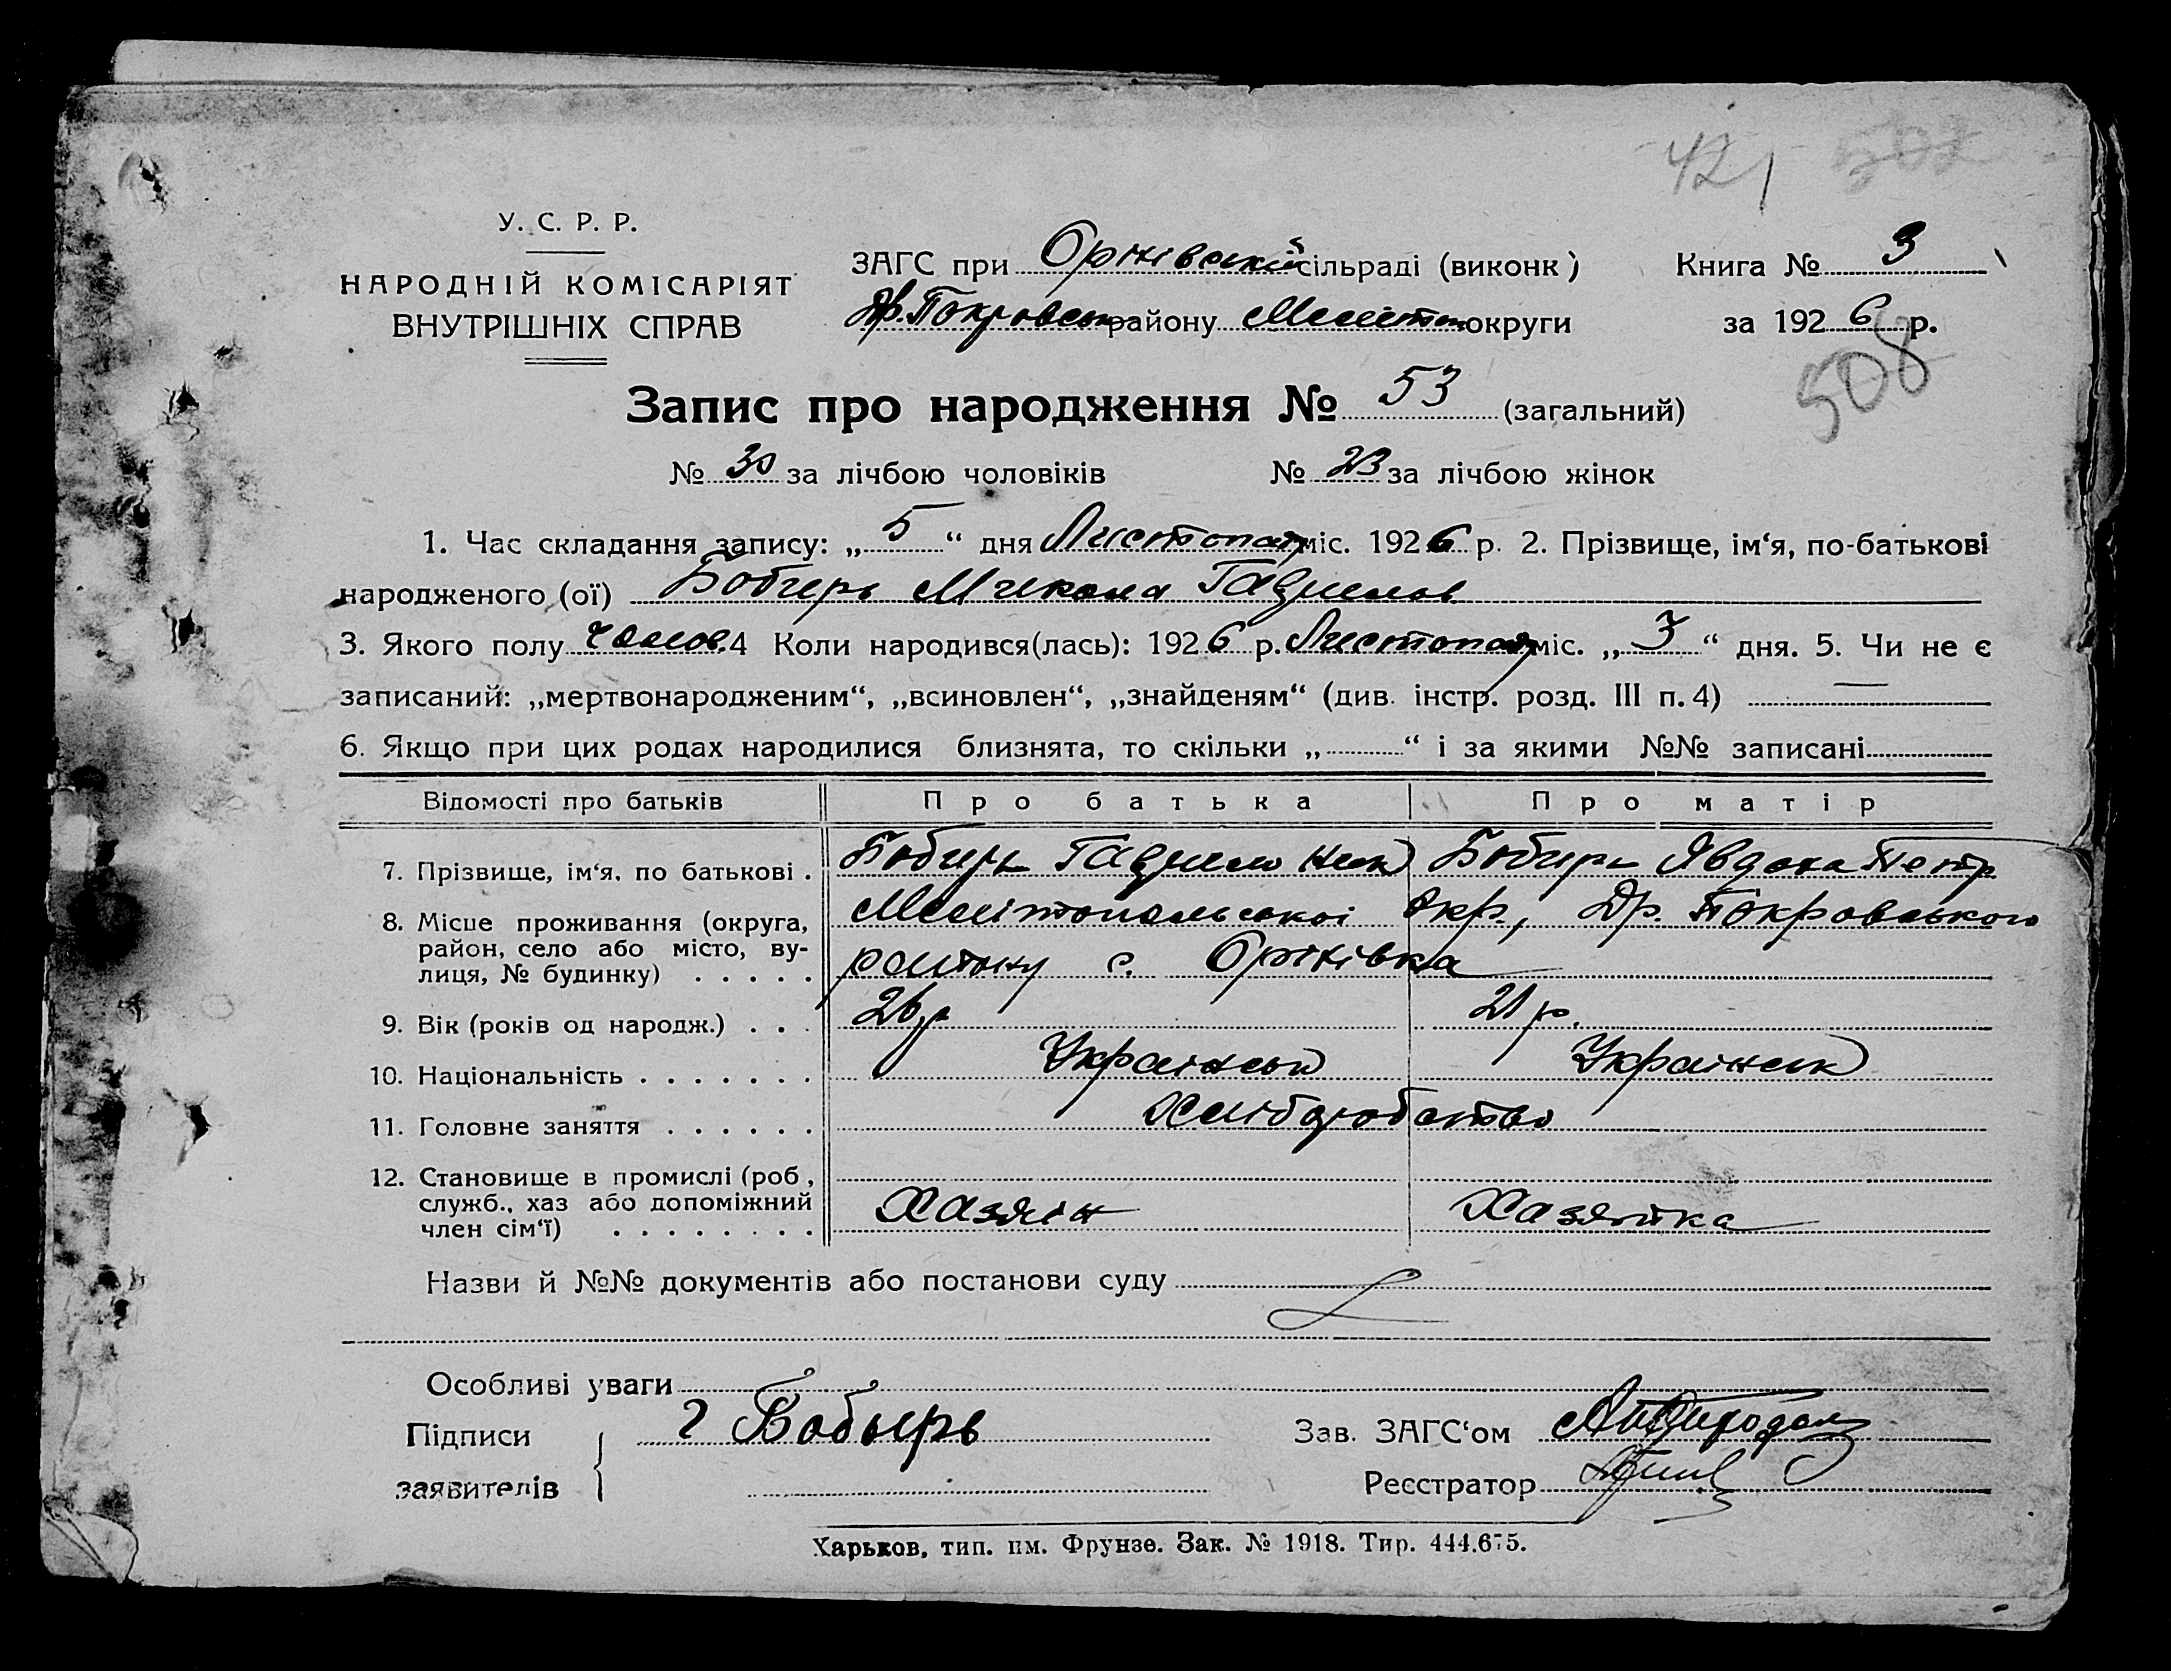 421 502
У. С. Р. Р.
НАРОДНІЙ КОМІСАРІЯТ
ВНУТРІШНІХ СПРАВ
ЗАГС при Оріхівській сільраді (виконк)
Др. Покровськ району Меліт округи
Книга № 3
за 1926 р.
508
Запис про народження № 53 (загальний)
№ 30 за лічбою чоловіків № 23 за лічбою жінок
1. Час складання запису: „5“ дня Листопад міс. 1926 р. 2. Прізвище, ім‘я, по-батькові
народженого (ої) Бобирь Микола Гаврилов
3. Якого полу чолов. 4 Коли народився(лась): 1926 р. Листопад міс. „3“ дня. 5. Чи не є
записаний: „мертвонародженим“, „всиновлен“, „знайденям“ (див. інстр. розд. III п. 4) —
6. Якщо при цих родах народилися близнята, то скільки „ “ і за якими №№ записані
Відомості про батьків Про батька Про матір
7. Прізвище, ім‘я, по батькові . Бобирь Гаврило Ник Бобирь Явдоха Петр
8. Місце проживання (округа, район, село або місто, вулиця, № будинку) . . . . . Мелітопольської Окр., Др. Покровського
району с. Оріхівка
9. Вік (років од народж.) . . . 26 р 21 р.
10. Національність . . . . . . . Українськ Українськ
11. Головне заняття . . . . . . Хліборобство
12. Становище в промислі (роб, служб., хаз або допоміжний член сім‘ї) . . . . . . . . Хазяїн Хазяйка
Назви й №№ документів або постанови суду
Особливі уваги
Підписи
заявителів
Г Бобырь
Зав. ЗАГС‘ом
Реєстратор
Харьков, тип. им. Фрунзе. Зак. № 1918. Тир. 444.675.